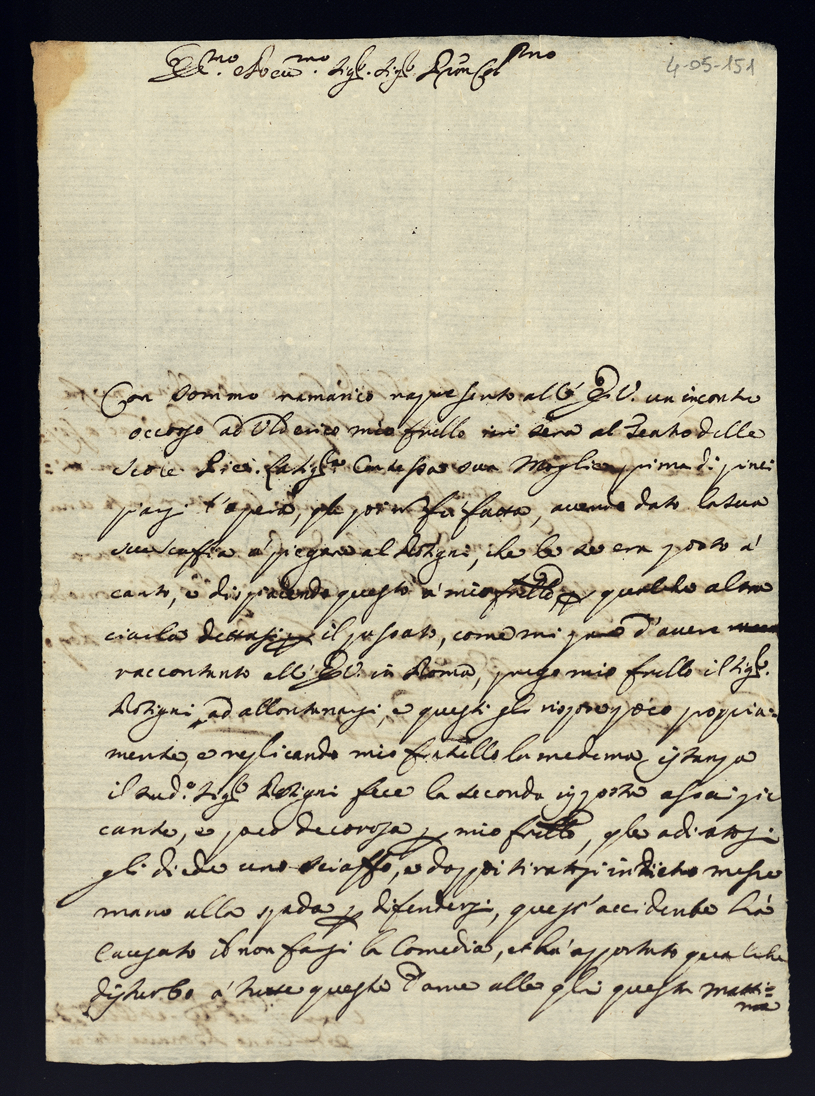 4-05-151
Con sommo ramarico rappresento all' E. V. un incontro
occorso ad Ulderico mio frello ieri sera al Teatro delle
Scole Pie. La Sig.ra Contessa sua Moglie prima di princi
piarsi l'opera, che poi non fù fatta, avendo dato la sua
scuffia à piegare al Rotigni, che le se era posto à
canto, e dispiacendo questo à mio frello p qualche altra
ciarla dettasi p il passato, come mi pare d'avere
raccontato all' E. V. in Roma, prego mio frello il Sig.r
Rotigni ad allontanarsi, e questi gli rispose poco propria=
mente, e replicando mio fratello la medema istanza
il sud.o Sig.r Rotigni fece la seconda risposta assai pic
cante, e poco decorosa p mio frello, che adiratosi
gli diede uno sciaffo, e doppo tiratosi indietro messe
mano alla spada p difendersi, quest' accidente hà
causato il non farsi la Comedia, et hà apportato qualche
disturbo à tutte queste Dame alle qli questa matti=
na